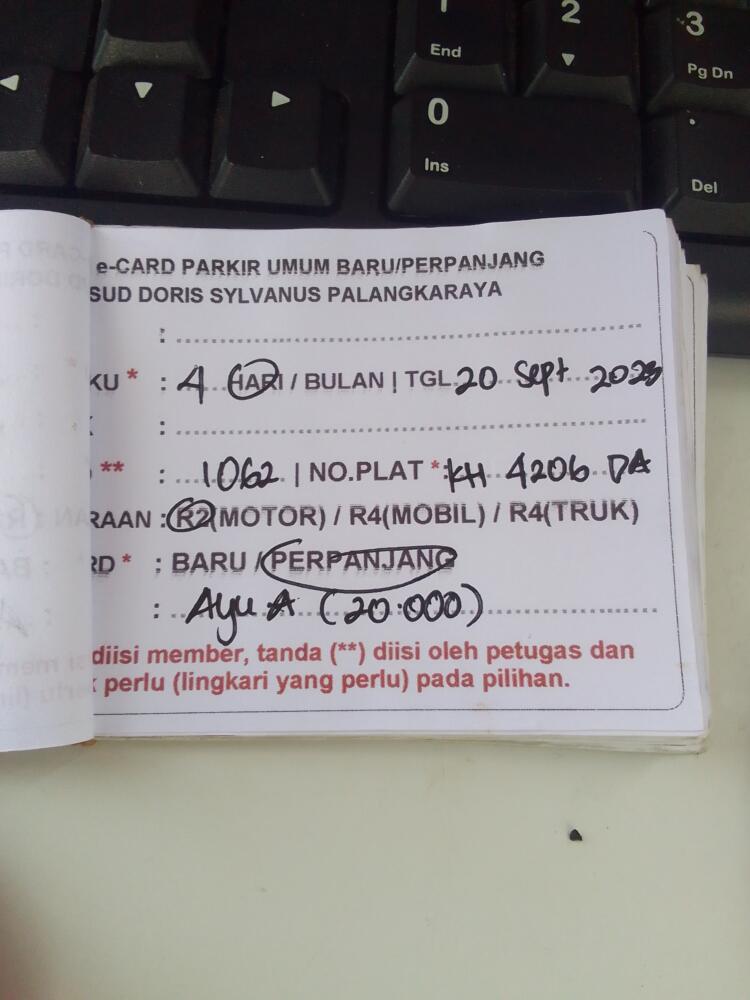 1
End
2
3
Pg Dn
0
Ins
.
Del
e-CARD PARKIR UMUM BARU/PERPANJANG
SUD DORIS SYLVANUS PALANGKARAYA
:
KU * : 4 HARI / BULAN | TGL 20 Sept 2023
:
** : 1062 | NO.PLAT *: KH 4206 DA
RAAN : R2(MOTOR) / R4(MOBIL) / R4(TRUK)
RD * : BARU / PERPANJANG
: Ayu A (20.000)
diisi member, tanda (**) diisi oleh petugas dan
perlu (lingkari yang perlu) pada pilihan.